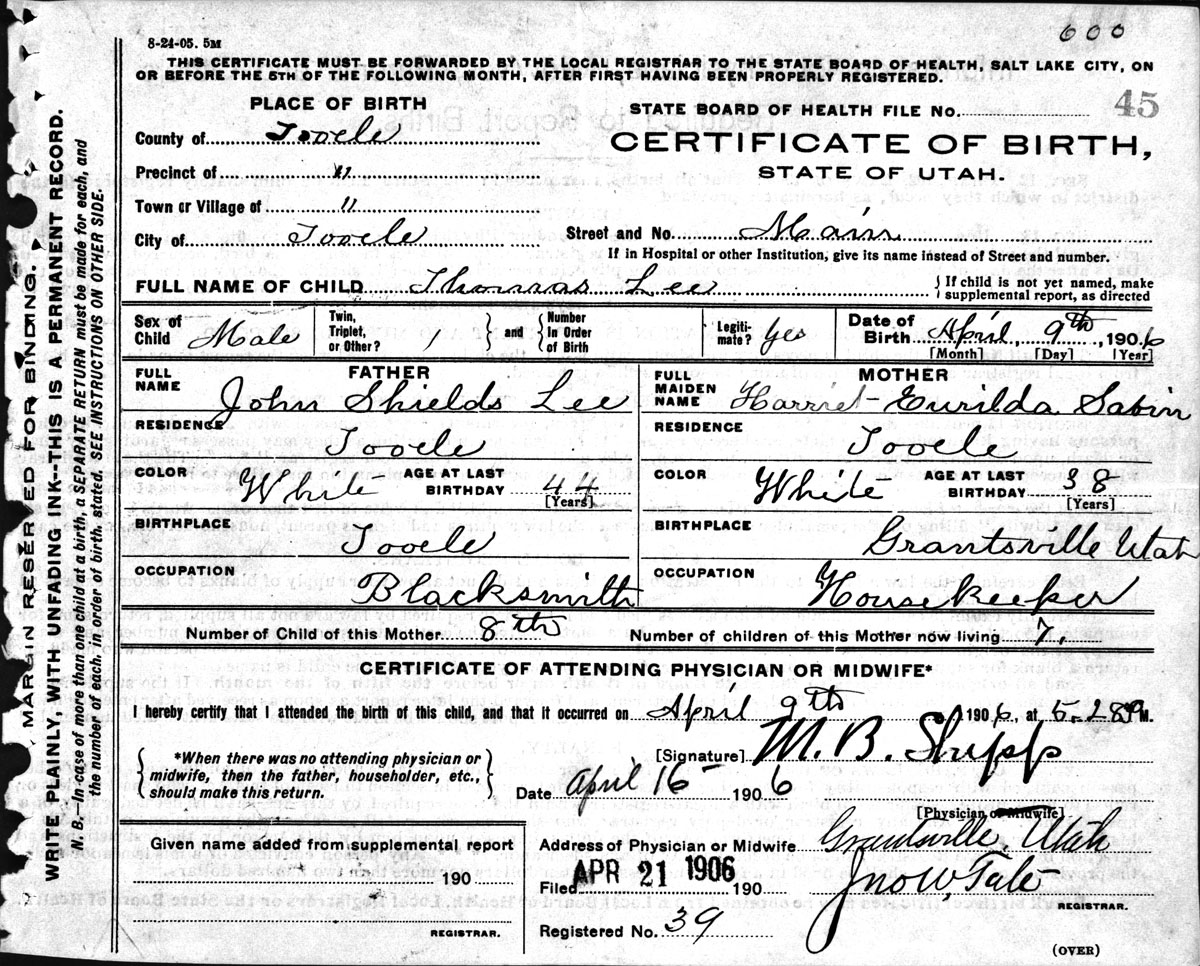 600
8-24-05. 5M
THIS CERTIFICATE MUST BE FORWARDED BY THE LOCAL REGISTRAR TO THE STATE BOARD OF HEALTH, SALT LAKE CITY, ON
OR BEFORE THE 5TH OF THE FOLLOWING MONTH, AFTER FIRST HAVING BEEN PROPERLY REGISTERED.
PLACE OF BIRTH
STATE BOARD OF HEALTH FILE No. 45
County of Tooele
CERTIFICATE OF BIRTH,
Precinct of "
STATE OF UTAH.
Town or Village of "
City of Tooele Street and No. Main
If in Hospital or other Institution, give its name instead of Street and number.
FULL NAME OF CHILD Thomas Lee { If child is not yet named, make
supplemental report, as directed
Sex of Child Male Twin, Triplet, or Other? / } and { Number In Order of Birth Legiti- mate? Yes Date of Birth April 9th, 1906
[Month] [Day] [Year]
FATHER
FULL NAME John Shields Lee
MOTHER
FULL MAIDEN NAME Harriet Eurilda Sabin
RESIDENCE Tooele
RESIDENCE Tooele
COLOR White AGE AT LAST BIRTHDAY 44 [Years]
COLOR White AGE AT LAST BIRTHDAY 38 [Years]
BIRTHPLACE Tooele
BIRTHPLACE Grantsville Utah
OCCUPATION Blacksmith
OCCUPATION Housekeeper
Number of Child of this Mother 8th Number of children of this Mother now living 7.
CERTIFICATE OF ATTENDING PHYSICIAN OR MIDWIFE*
I hereby certify that I attended the birth of this child, and that it occurred on April 9th 1906, at 5.28 M.
[Signature] M. B. Shipp
{ *When there was no attending physician or
midwife, then the father, householder, etc.,
should make this return. }
Date April 16 1906
[Physician or Midwife]
Given name added from supplemental report
190
REGISTRAR.
Address of Physician or Midwife Grantsville, Utah
Filed APR 21 1906 190 Jno W Tate
REGISTRAR.
Registered No. 39
(OVER)
MARGIN RESERVED FOR BINDING.
WRITE PLAINLY, WITH UNFADING INK—THIS IS A PERMANENT RECORD.
N. B.—In case of more than one child at a birth, a SEPARATE RETURN must be made for each, and
the number of each, in order of birth, stated. SEE INSTRUCTIONS ON OTHER SIDE.